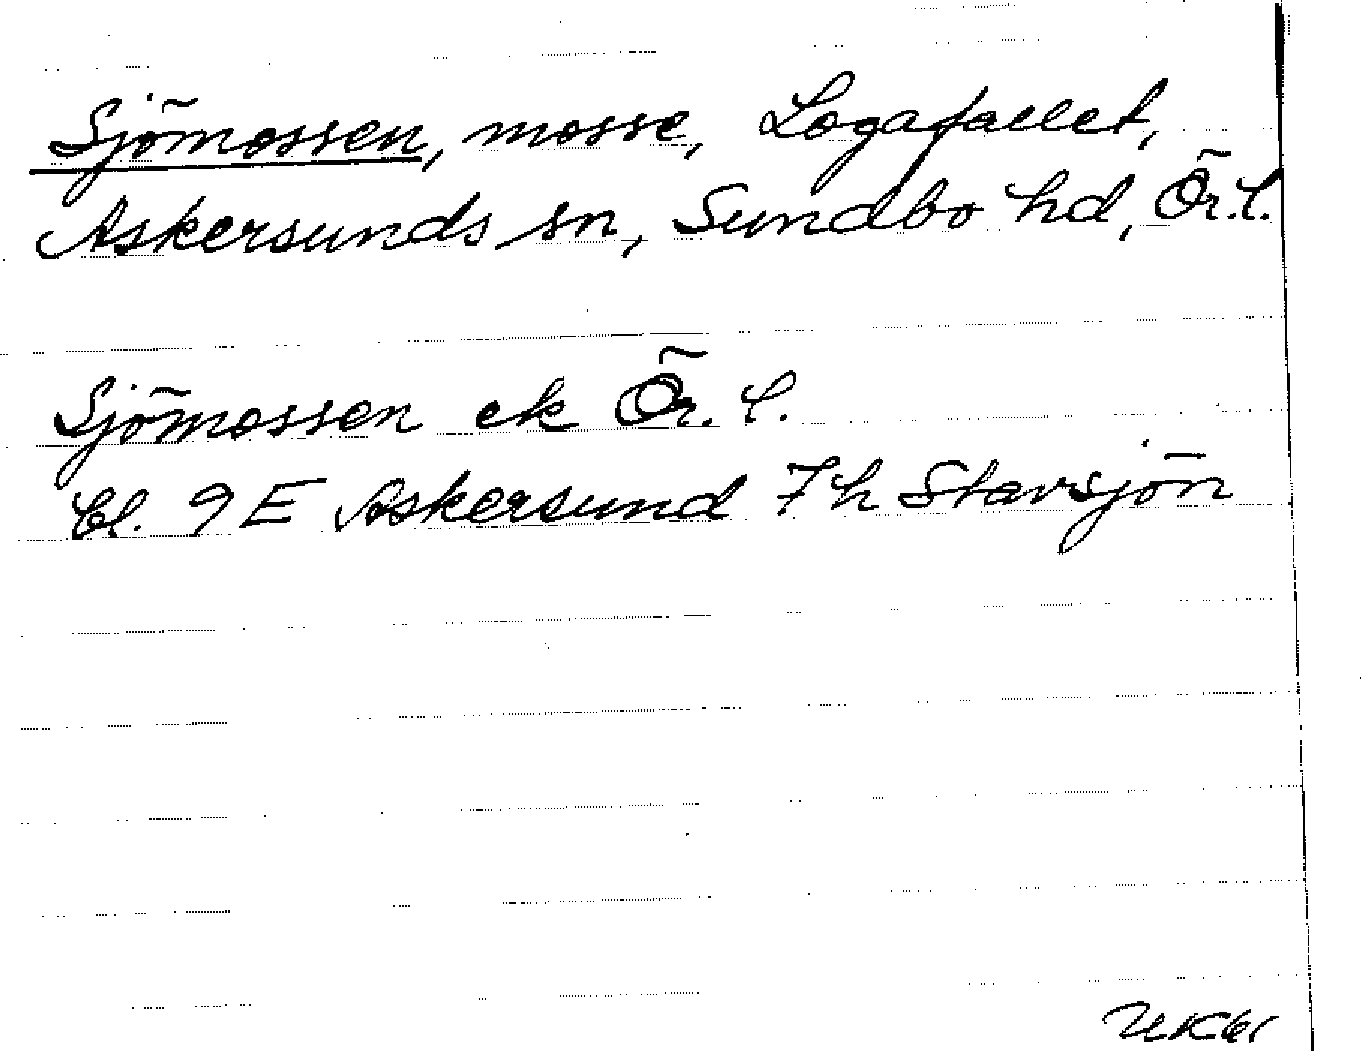 Sjömossen, mosse, Logafallet,
Askersunds sn, Sundbo hd, Ör.l.
Sjömossen ek Ör.l.
Bl. 9 E Askersund 7h Stavsjön